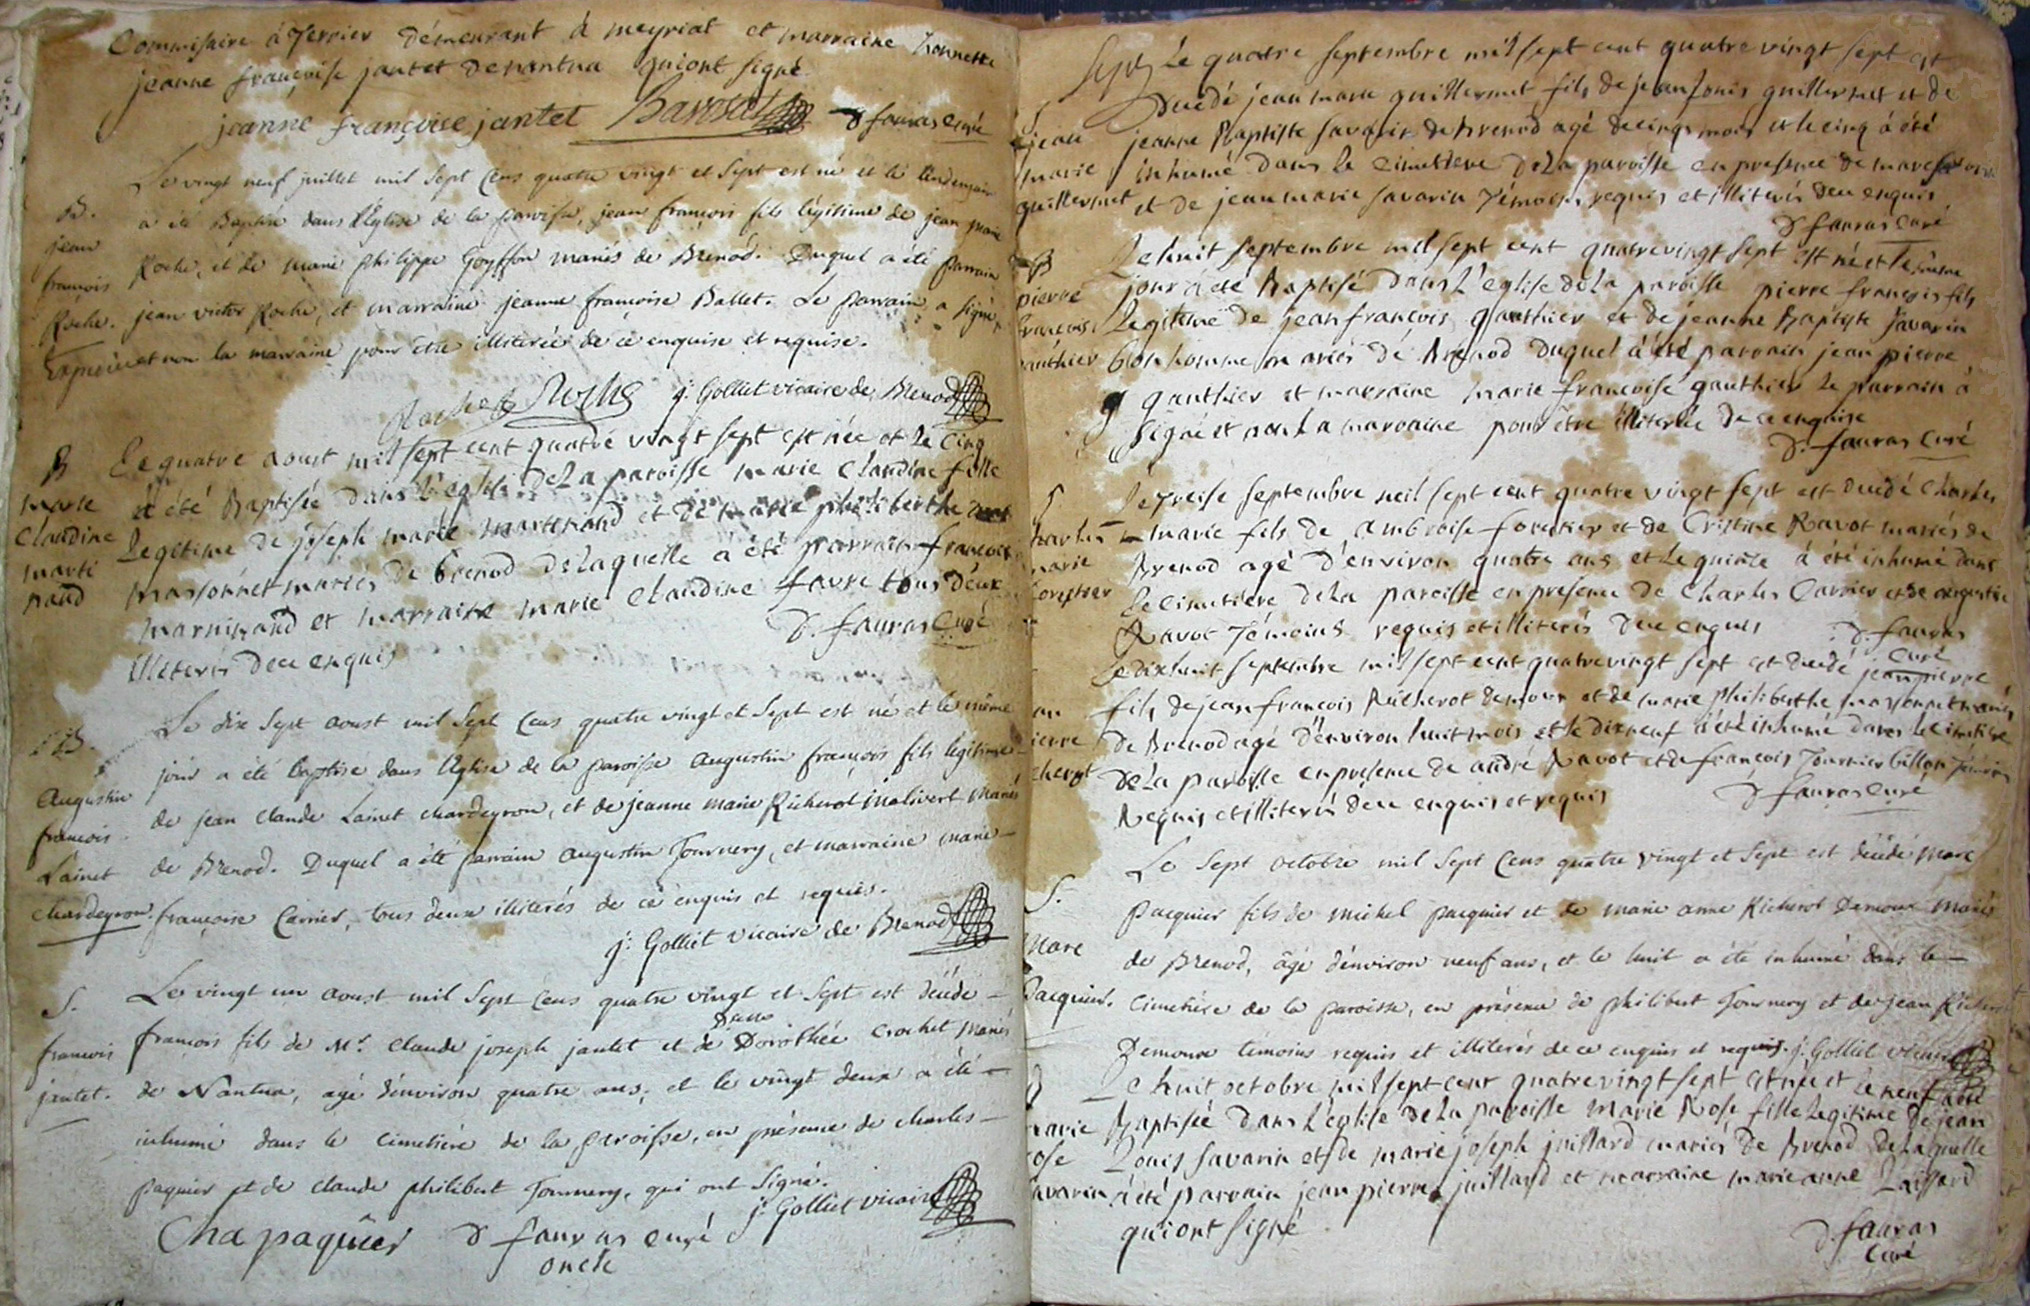 Commissaire à Terrier demeurant à meyriat et marraine honnette
jeanne françoise jantet de nantua qui ont signé
jeanne françoise jantet D fauras curé
Le vingt neuf juillet mil sept cens quatre vingt et sept est né et le lendemain
B. a été Baptisé dans l'Eglise de la paroisse, jean françois fils légitime de jean marie
jean
françois Roche, et de marie philippe Goyffon mariés de Brenod. Duquel a été parrain
Roche. jean victor Roche, et marraine jeanne françoise Ballet. Le parrain a signé,
et non la marraine pour être illiterée de ce enquise et requise.
Roche j. Golliet vicaire de Brenod
B Le quatre aoust mil sept cent quatre vingt sept est née et le cinq
marie à été Baptisée dans l'église de La paroisse marie Claudine fille
Claudine Legitime de joseph marie martinand et de marie philiberthe
marti massonnet mariés de brenod de Laquelle a été parrain francois
nand marninand et marraine marie Claudine favre tous deux
illiterés de ce enquis D. fauras Curé
Le dix sept aoust mil sept cens quatre vingt et sept est né et le même
B.
jour a été baptisé dans l'Eglise de la paroisse augustin françois fils légitime
Augustin
de jean claude Lainet chardeyron, et de jeanne marie Richerot malivert mariés
françois
Lainet de Brenod. Duquel a été parrain augustin Tournery, et marraine marie
chardeyron. françoise Carrier, tous deux illiterés de ce enquis et requis.
j. Golliet vicaire de Brenod
S. Le vingt un aoust mil sept cens quatre vingt et sept est décédé
françois françois fils de Mr. claude joseph jantet et de Dame Dorothée crochet mariés
jantet. de Nantua, agé d'environ quatre ans, et le vingt deux a été
inhumé dans le cimetière de la paroisse, en présence de charles
paquier et de claude philibert Tournery, qui ont signé.
j. Golliet vicaire
Cha paquier D fauras curé
oncle
Le quatre septembre mil sept cent quatre vingt sept est
S decedé jean marie guillermet fils de jean Louis guillermet et de
jean jeanne Baptiste savarin de Brenod agé de cinq mois et le cinq à été
marie inhumé dans le cimetiere de La paroisse en presence de marc
guillermet et de jean marie savarin Témoins requis et illiterés de ce enquis
D fauras curé
B Le huit septembre mil sept cent quatre vingt sept est né et le même
pierre jour à été Baptisé dans L'eglise de La paroisse pierre françois fils
françois Legitime de jean françois gauthier et de jeanne Baptiste savarin
gauthier bonhomme mariés de Brenod duquel à été parrain jean pierre
gauthier et marraine marie francoise gauthier le parrain à
signé et non La marraine pour être illiterée de ce enquise
D. fauras curé
S Le Treise septembre mil sept cent quatre vingt sept est decedé charles
Charles marie fils de ambroise forestier et de Cristine Ravot mariés de
marie Brenod agé d'environ quatre ans et Le quinze à été inhumé dans
forestier Le cimetiere de La paroisse en presence de Charles Carrier et de augustin
Ravot Témoins requis et illiterés de ce enquis D. fauras
curé
Le dix huit septembre mil sept cent quatre vingt sept est decedé jean pierre
fils de jean françois Richerot demoux et de marie philiberthe massonnet mariés
de Brenod agé d'environ huit mois et le dix neuf à été inhumé dans le cimetiere
de La paroisse en presence de andré Ravot et de françois Tournier billon Témoins
Requis et illiterés de ce enquis et requis D fauras curé
Le sept octobre mil sept cens quatre vingt et sept est décédé marc
S. pacquier fils de michel pacquier et de marie anne Richerot Demoux mariés
Marc de Brenod, âgé d'environ neuf ans, et le huit a été inhumé dans le
Pacquier. cimetière de la paroisse, en présence de philibert Tournery et de jean Richerot
Demoux témoins requis et illiterés de ce enquis et requis. j. Golliet vicaire
Le huit octobre mil sept cent quatre vingt sept est née et le neuf a été
marie Baptisée dans L'église de La paroisse marie Rose fille Legitime de jean
rose Louis savarin et de marie joseph juillard mariés de Brenod de Laquelle
savarin à été parrain jean pierre juillard et marraine marie anne
qui ont signé
D. fauras
Curé